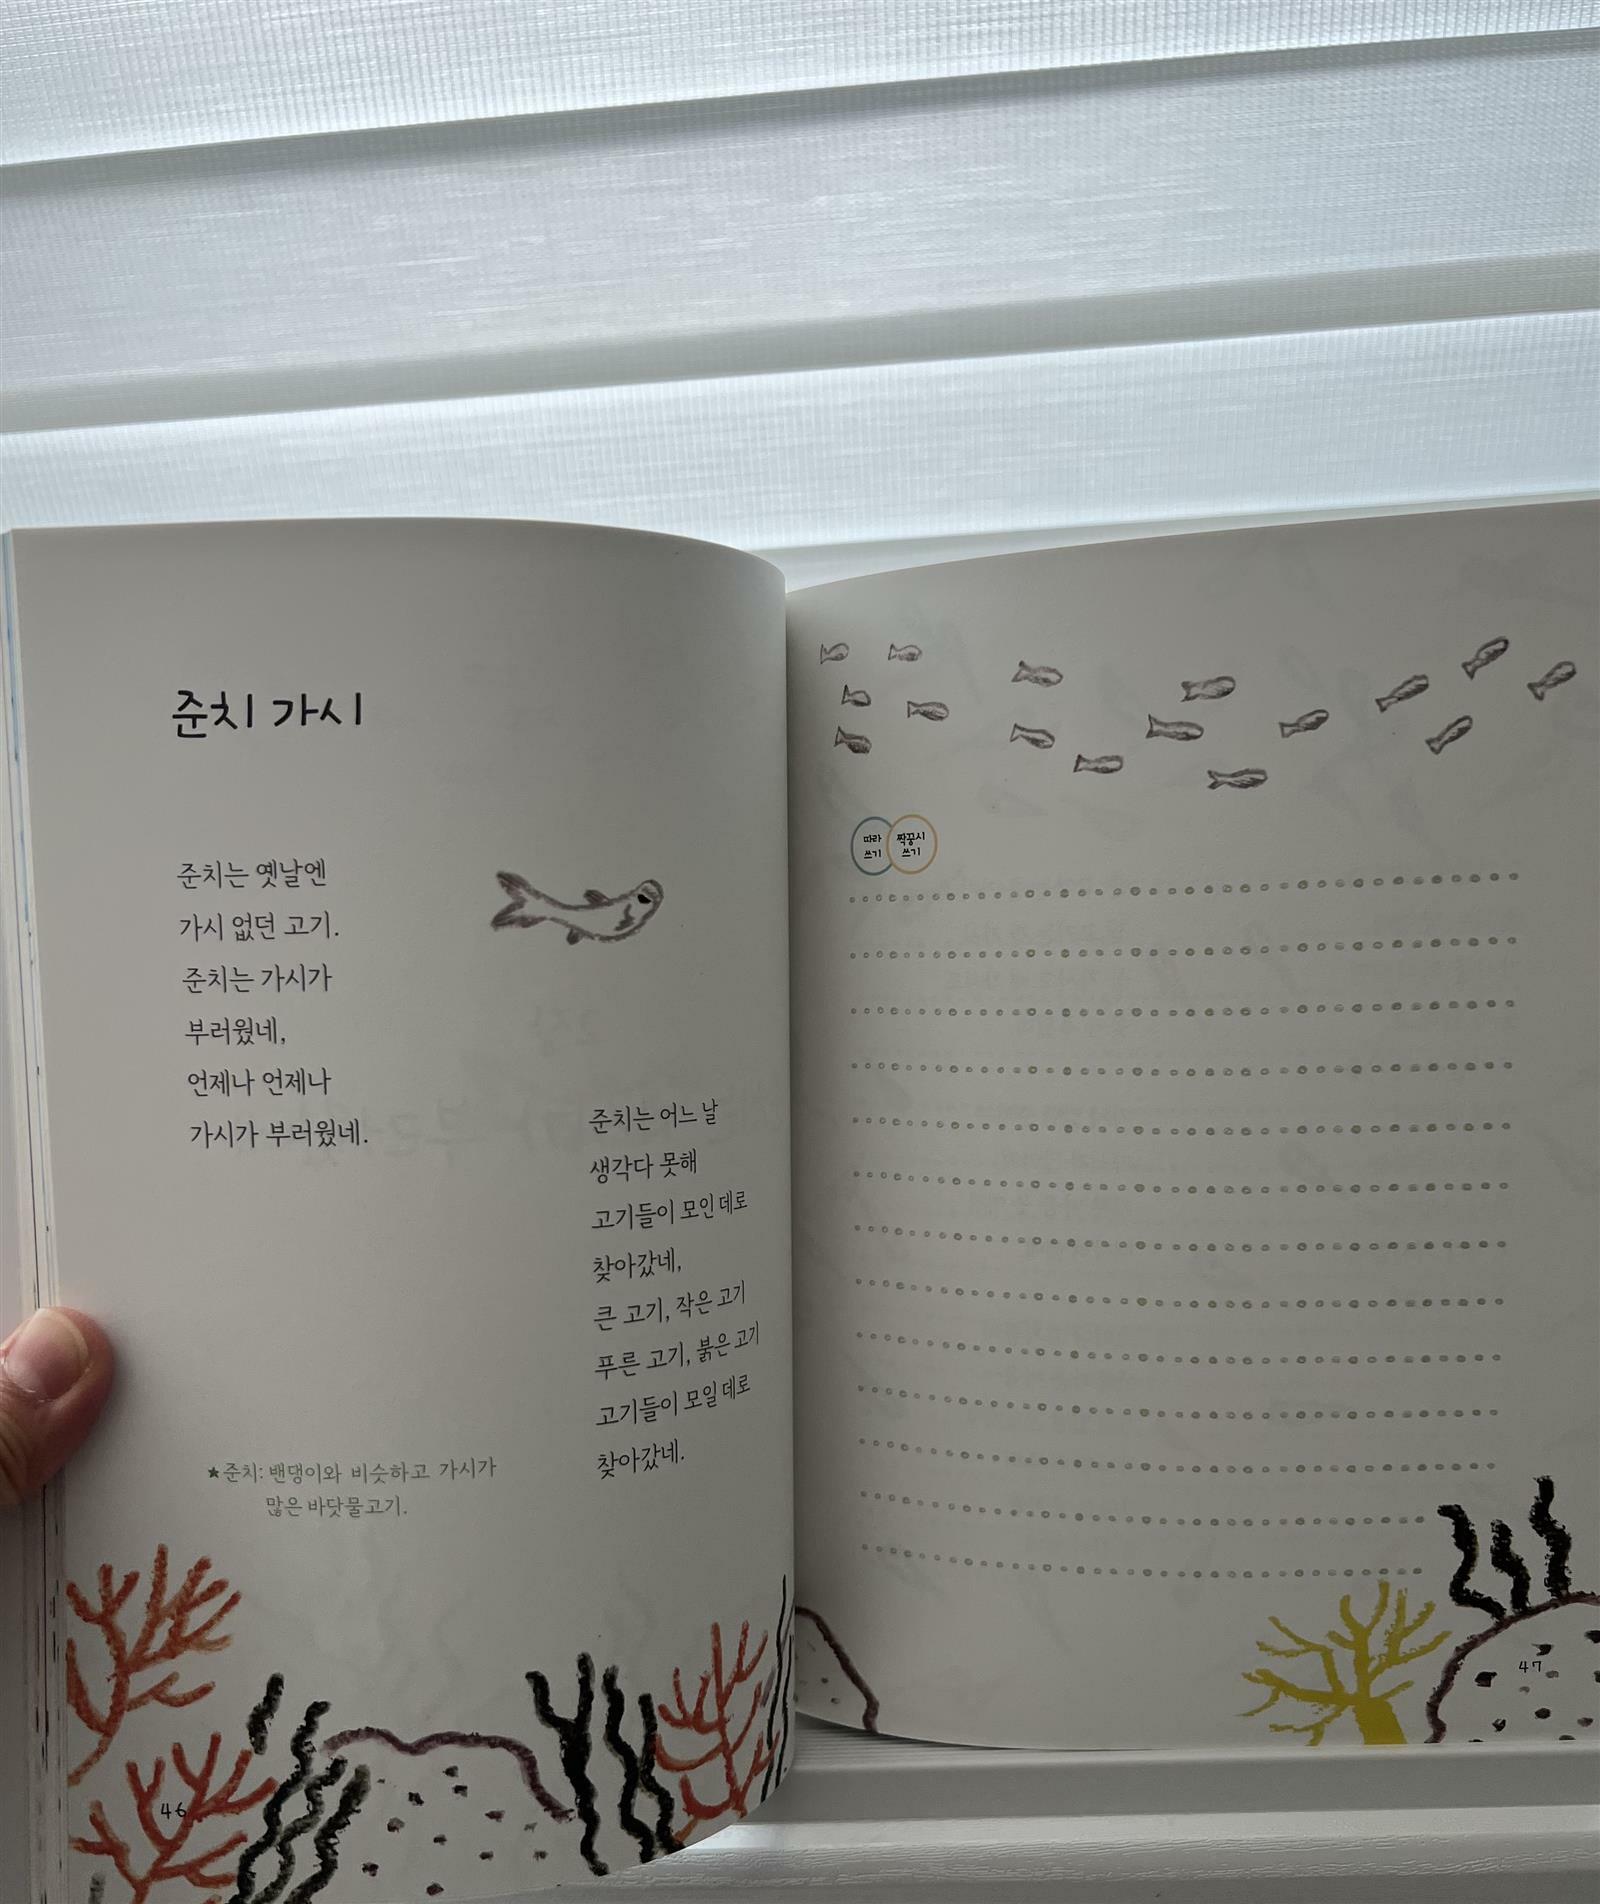 준치 가시
준치는 옛날엔
가시 없던 고기.
준치는 가시가
부러웠네,
언제나 언제나
가시가 부러웠네.
준치는 어느 날
생각다 못해
고기들이 모인 데로
찾아갔네,
큰 고기, 작은 고기
푸른 고기, 붉은 고기
고기들이 모일 데로
찾아갔네.
★준치: 밴댕이와 비슷하고 가시가
많은 바닷물고기.
46
따라
쓰기
짝꿍시
쓰기
47